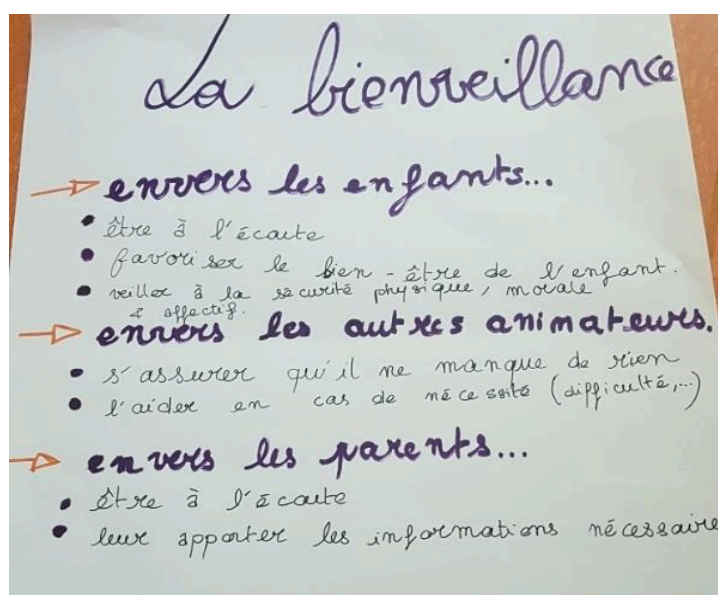 La bienveillance
envers les enfants...
être à l'écoute
favoriser le bien-être de l'enfant.
veiller à la sécurité physique, morale
& affectif.
envers les autres animateurs.
s'assurer qu'il ne manque de rien
l'aider en cas de nécessité (difficulté,...)
envers les parents...
être à l'écoute
leur apporter les informations nécessaire